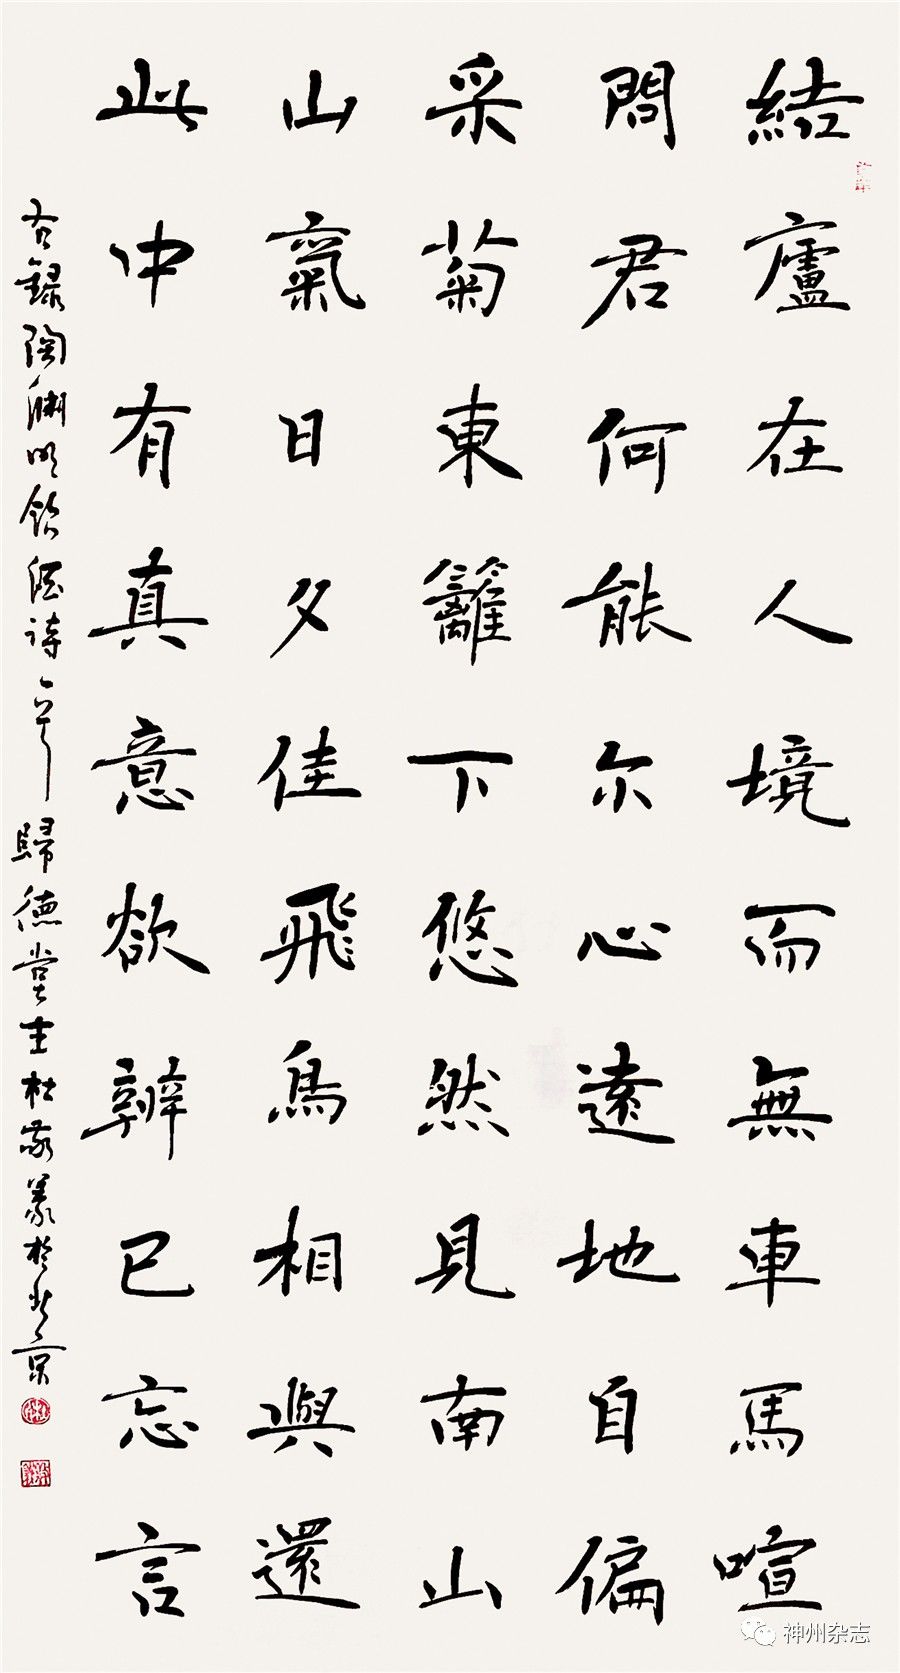 結廬在人境而無車馬喧
問君何能尔心遠地自偏
采菊東籬下悠然見南山
山氣日夕佳飛鳥相與還
此中有真意欲辨已忘言
右錄陶渊明飲酒詩 歸德堂主杜敬於北京
神州杂志